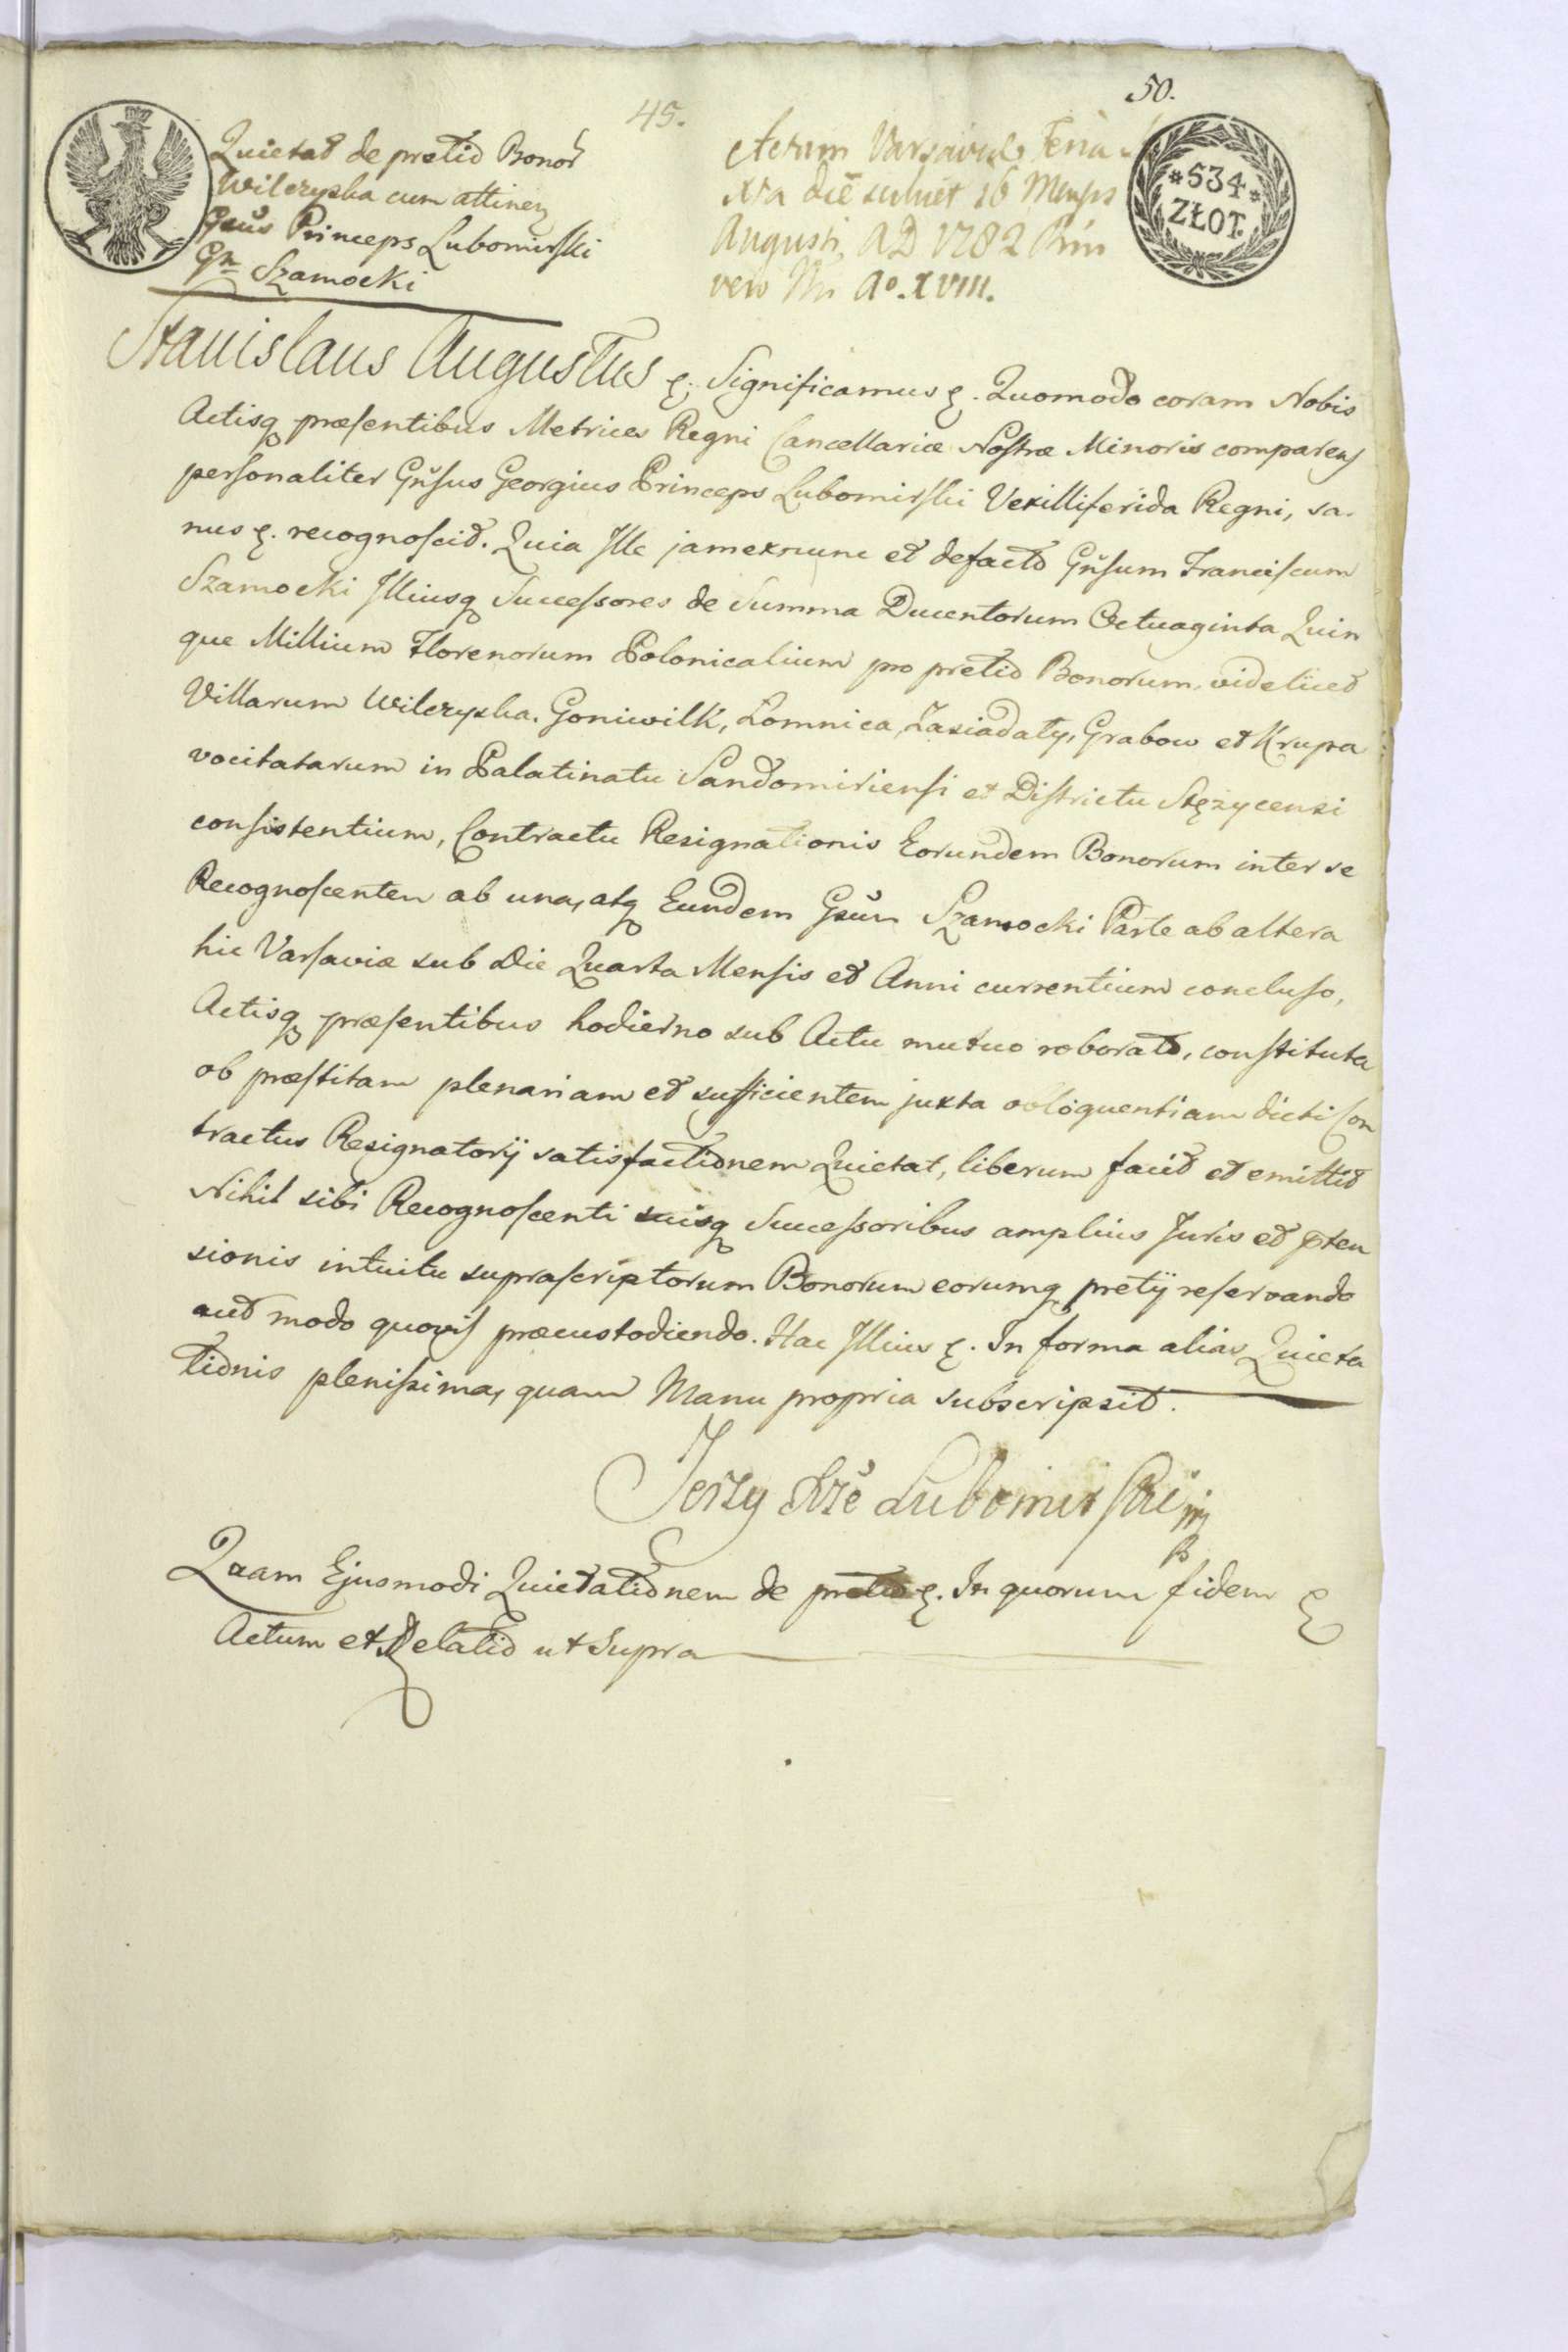 50.
45.
*534*
ZŁOT.
Quietat de pretio Bonor
Wilczyska cum attinen
Gsus Princeps Lubomirski
Gn Szamocki
Actum Varsaviae Feria
xta die scilicet 16 Mensis
Augusti, AD 1782
vero Nri Ao. XVIII.
Stanislaus Augustus &. Significamus &. Quomodo coram Nobis
Actisq præsentibus Metrices Regni Cancellariæ Nostræ Minoris comparens
personaliter Gnsus Georgius Princeps Lubomirski Vexilliferida Regni, sa-
nus &. recognoscit. Quia Ille jamexnunc et defacto Gnsum Franciscum
Szamocki Illiusq Successores de Summa Ducentorum Octuaginta Quin
que Millium Florenorum Polonicalium pro pretio Bonorum, videlicet
Villarum Wilczyska, Goniwilk, Łomnica, Zasiadały, Grabow et Krupa
vocitatarum in Palatinatu Sandomiriensi et Districtu Stęzycensi
consistentium, Contractu Resignationis Eorundem Bonorum inter se
Recognoscentem ab una, atq Eundem Gsum Szamocki Parte ab altera
hic Varsaviæ sub Die Quarta Mensis et Anni currentium concluso,
Actisq præsentibus hodierno sub Actu mutuo roborato, constituta
ob præstitam plenariam et sufficientem juxta obloquentiam dicti Con
tractus Resignatorij satisfactionem Quietat, liberum facit et emittit
Nihil sibi Recognoscenti suisq Successoribus amplius Juris et pten
sionis intuitu suprascriptorum Bonorum eorumq pretij reservando
aut modo quovis præcustodiendo. Hac Illius &. In forma alias Quieta
tionis plenissima, quam Manu propria subscripsit.
Jerzy Xże Lubomirski mp
Quam Ejusmodi Quietationem de pretio &. In quorum fidem &
Actum et Relatio ut Supra